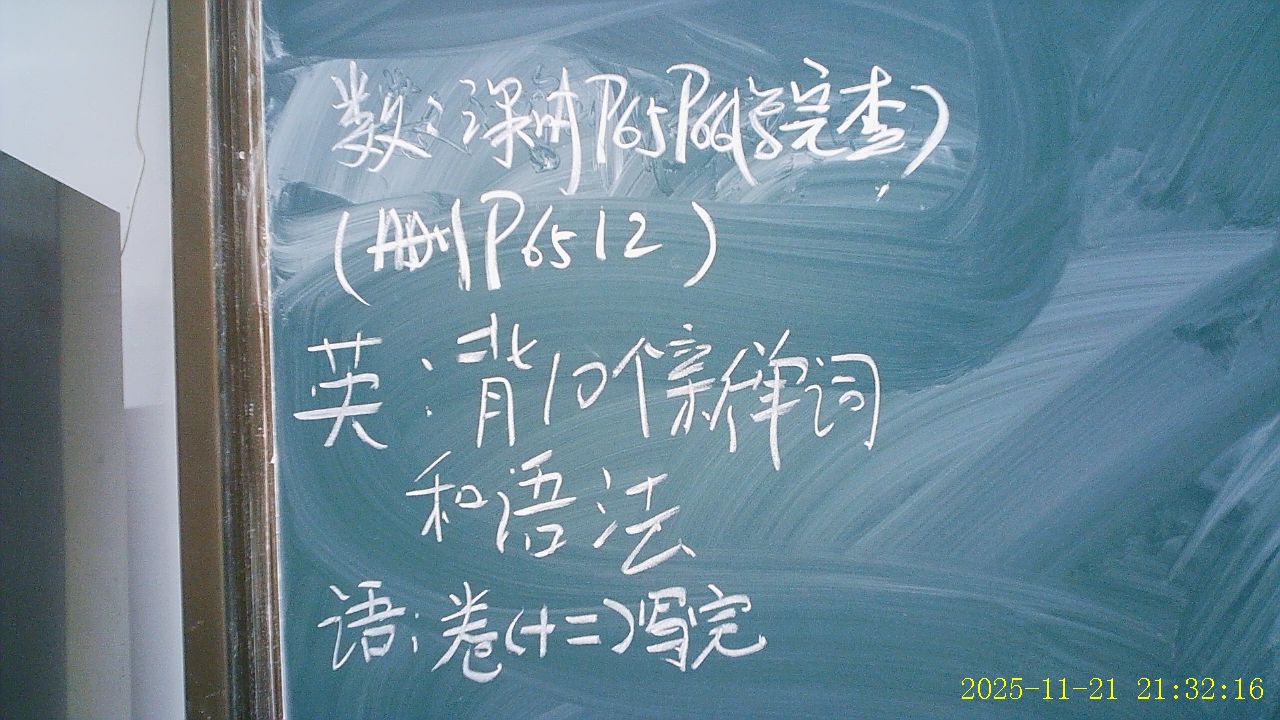 数:课时P65P66(写完查)
(删P65 12)
英:背10个新单词
和语法
语:卷(十二)写完
2025-11-21 21:32:16